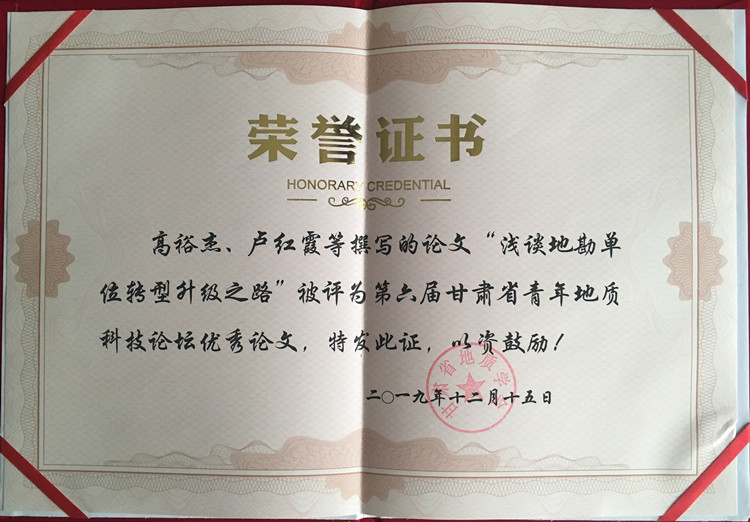 荣誉证书
HONORARY CREDENTIAL
高裕杰、卢红霞等撰写的论文“浅谈地勘单
位转型升级之路”被评为第六届甘肃省青年地质
科技论坛优秀论文，特发此证，以资鼓励！
甘肃省地质学会
二〇一九年十二月十五日